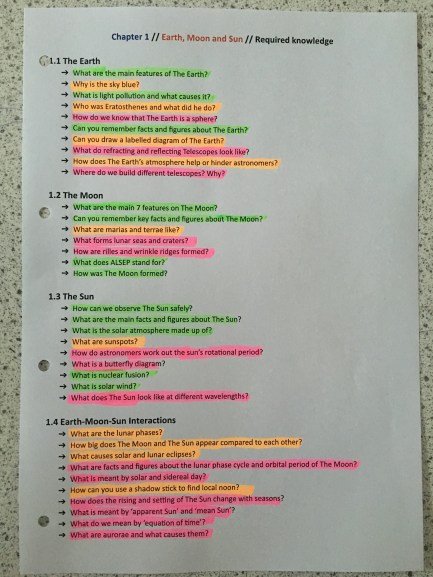 Chapter 1 // Earth, Moon and Sun // Required knowledge
1.1 The Earth
→ What are the main features of The Earth?
→ Why is the sky blue?
→ What is light pollution and what causes it?
→ Who was Eratosthenes and what did he do?
→ How do we know that The Earth is a sphere?
→ Can you remember facts and figures about The Earth?
→ Can you draw a labelled diagram of The Earth?
→ What do refracting and reflecting Telescopes look like?
→ How does The Earth's atmosphere help or hinder astronomers?
→ Where do we build different telescopes? Why?
1.2 The Moon
→ What are the main 7 features on The Moon?
→ Can you remember key facts and figures about The Moon?
→ What are marias and terrae like?
→ What forms lunar seas and craters?
→ How are rilles and wrinkle ridges formed?
→ What does ALSEP stand for?
→ How was The Moon formed?
1.3 The Sun
→ How can we observe The Sun safely?
→ What are the main facts and figures about The Sun?
→ What is the solar atmosphere made up of?
→ What are sunspots?
→ How do astronomers work out the sun's rotational period?
→ What is a butterfly diagram?
→ What is nuclear fusion?
→ What is solar wind?
→ What does The Sun look like at different wavelengths?
1.4 Earth-Moon-Sun Interactions
→ What are the lunar phases?
→ How big does The Moon and The Sun appear compared to each other?
→ What causes solar and lunar eclipses?
→ What are facts and figures about the lunar phase cycle and orbital period of The Moon?
→ What is meant by solar and sidereal day?
→ How can you use a shadow stick to find local noon?
→ How does the rising and setting of The Sun change with seasons?
→ What is meant by 'apparent Sun' and 'mean Sun'?
→ What do we mean by 'equation of time'?
→ What are aurorae and what causes them?